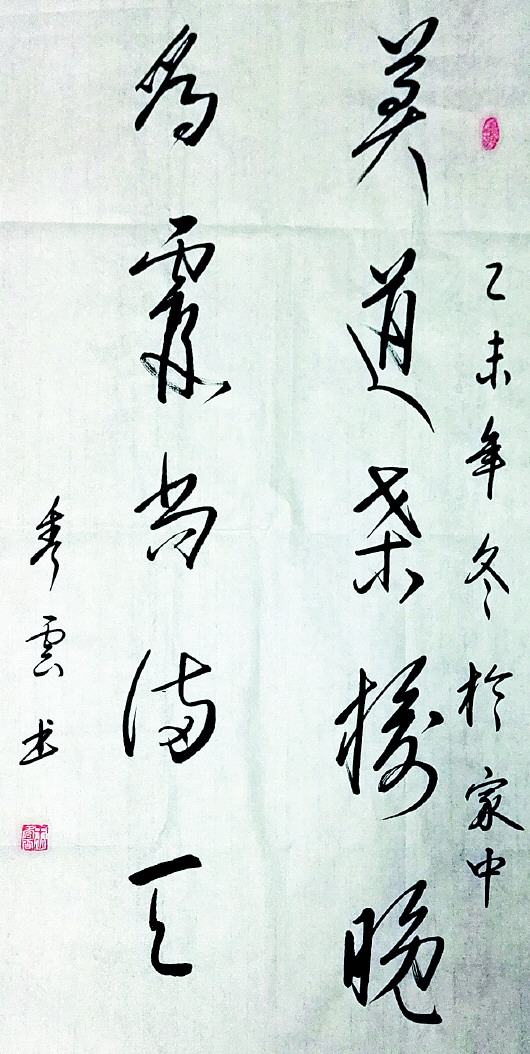 乙未年冬於家中
莫道桑榆晚
為霞尚满天
秀雲书